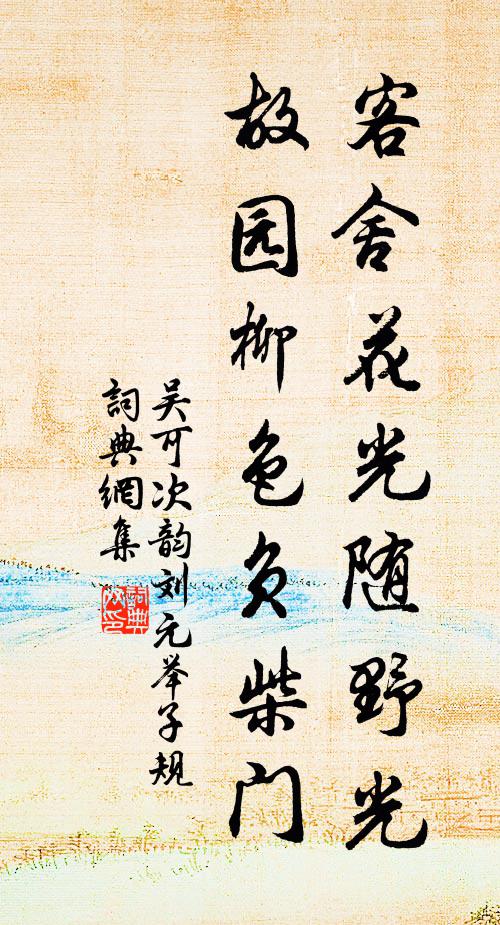 客舍花光随野光
故园柳色负柴门
吴可次韵刘元举子规
詞典網集
詞典